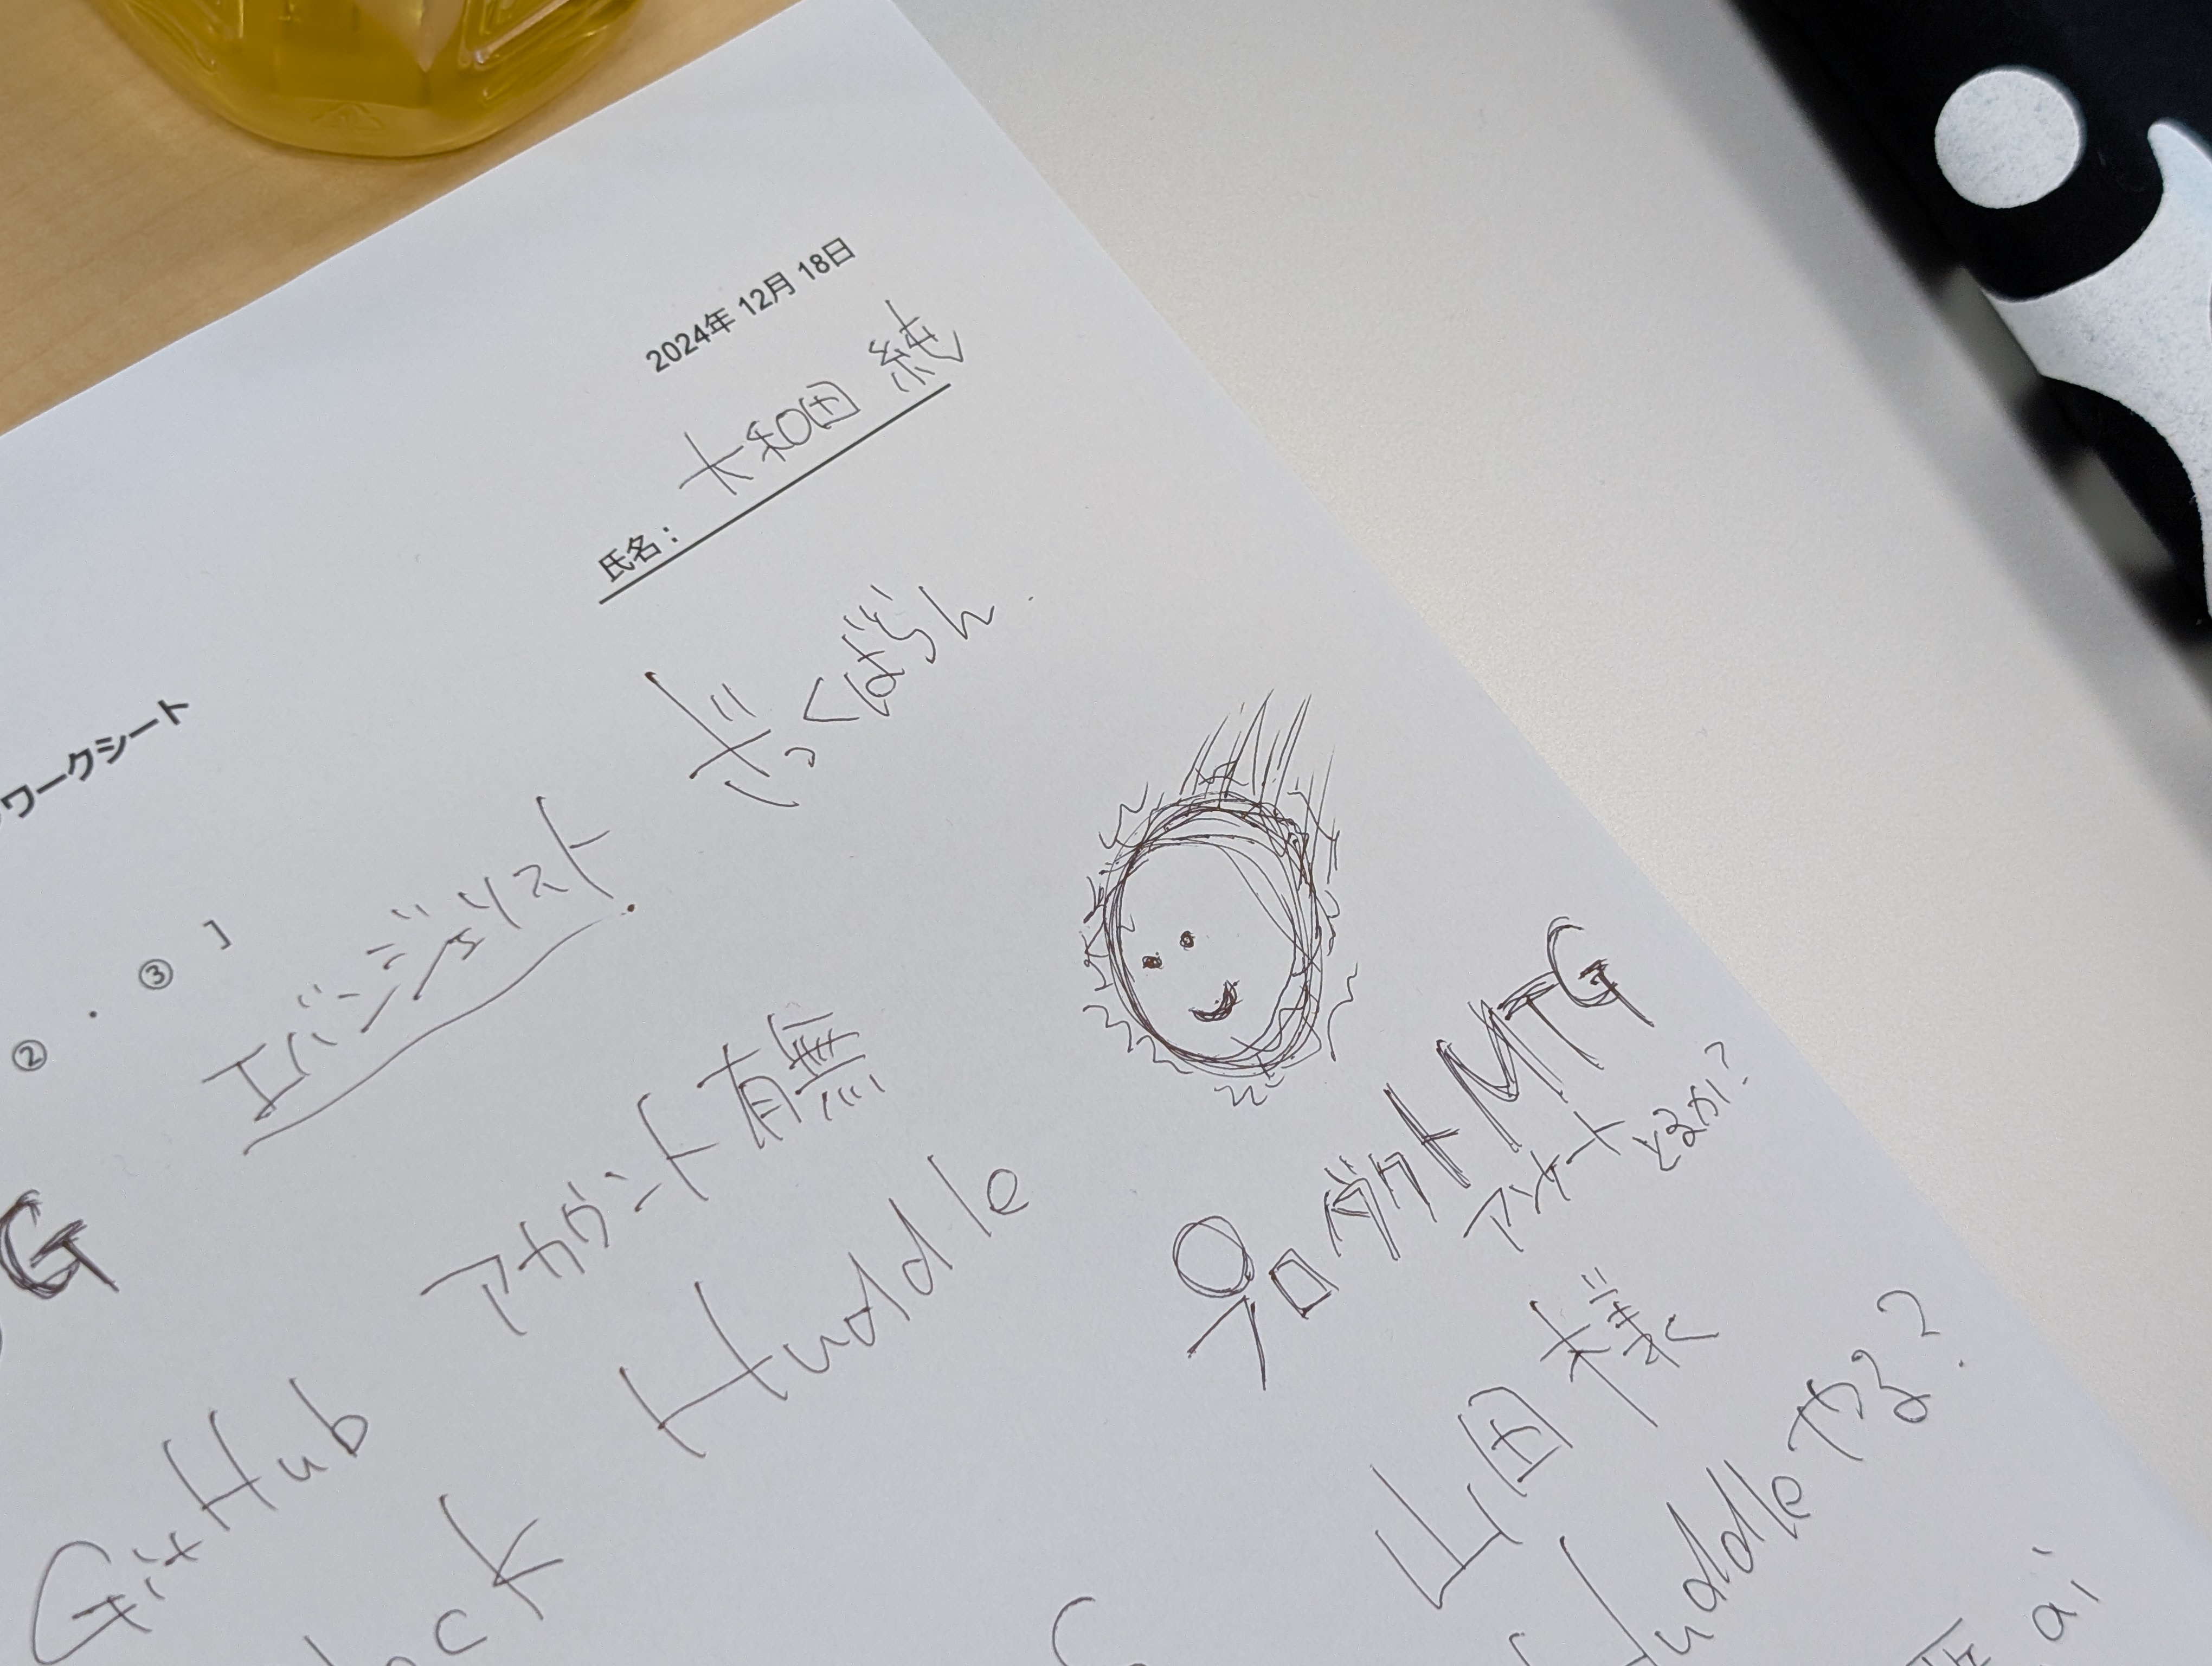 2024年 12月 18日
氏名： 大和田 純
ワークシート
ざっくばらん
② ・ ③ 」
エバンジェリスト
アカウント有無
G
プロダクトMTG
アンケートとるか?
GitHub
Huddle
山田 様
Huddleやる?
ai